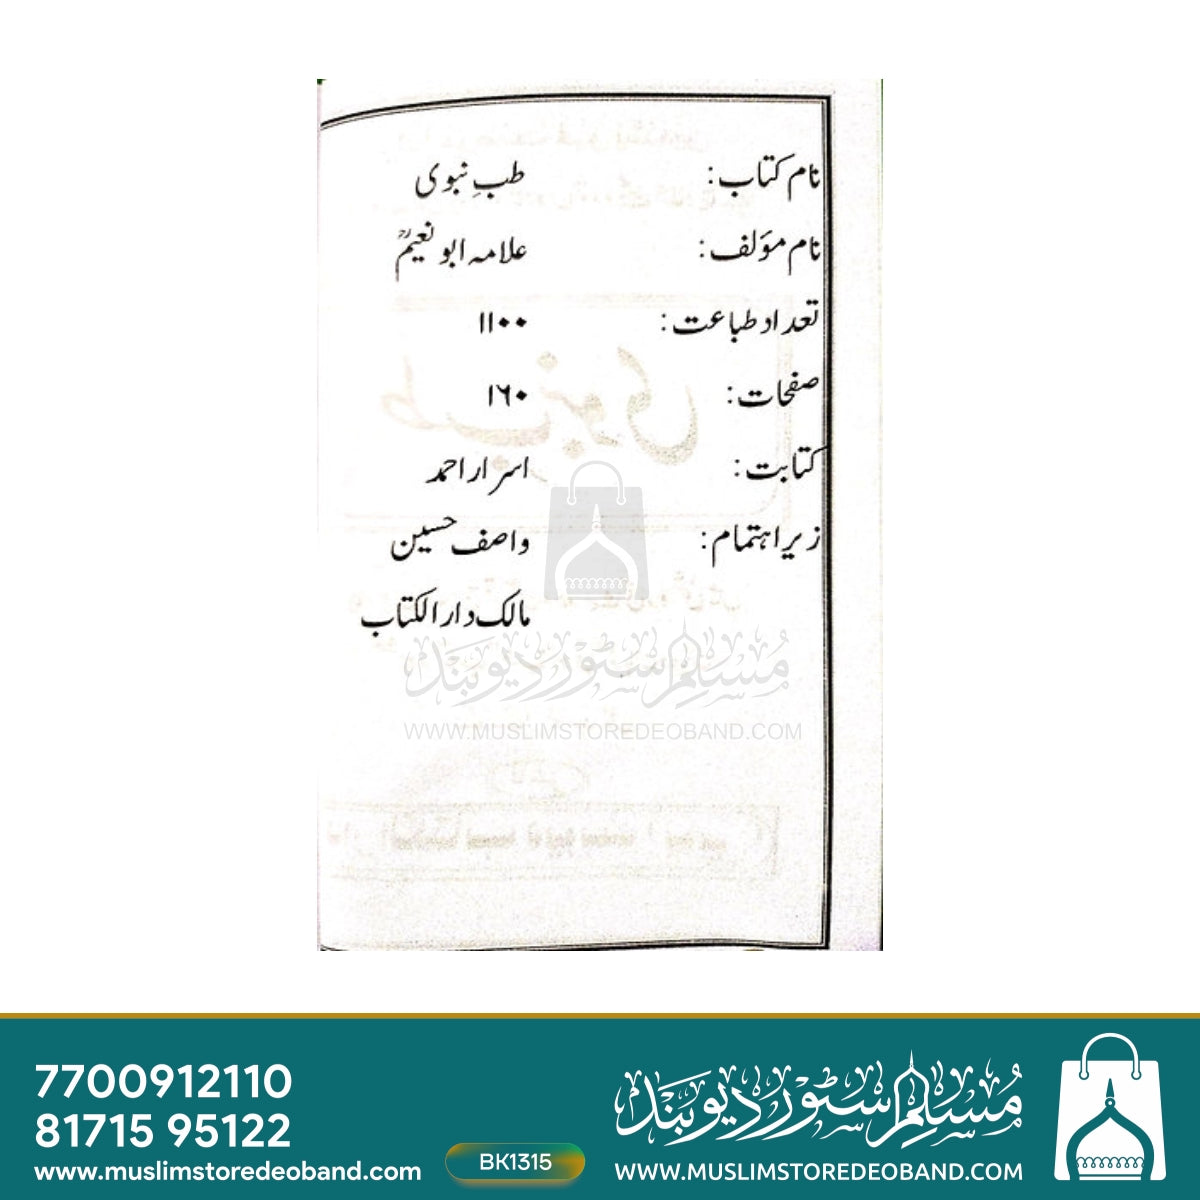 نام کتاب: طبِ نبوی
نام مؤلف: علامہ ابو نعیمؒ
تعداد طباعت: ۱۱۰۰
صفحات: ۱۶۰
کتابت: اسرار احمد
زیر اہتمام: واصف حسین
مالک دار الکتاب
مسلم سٹور دیوبند
WWW.MUSLIMSTOREDEOBAND.COM
7700912110
81715 95122
www.muslimstoredeoband.com
BK1315
مسلم سٹور دیوبند
WWW.MUSLIMSTOREDEOBAND.COM